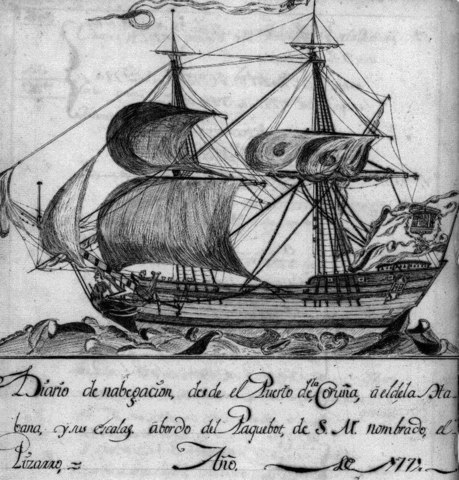 Diario de nabegacion, desde el Puerto de la Coruña, à el de la Ha-
bana, y sus escalas abordo del Paquebot, de S. M. nombrado, el
Pizarro, = Año. de